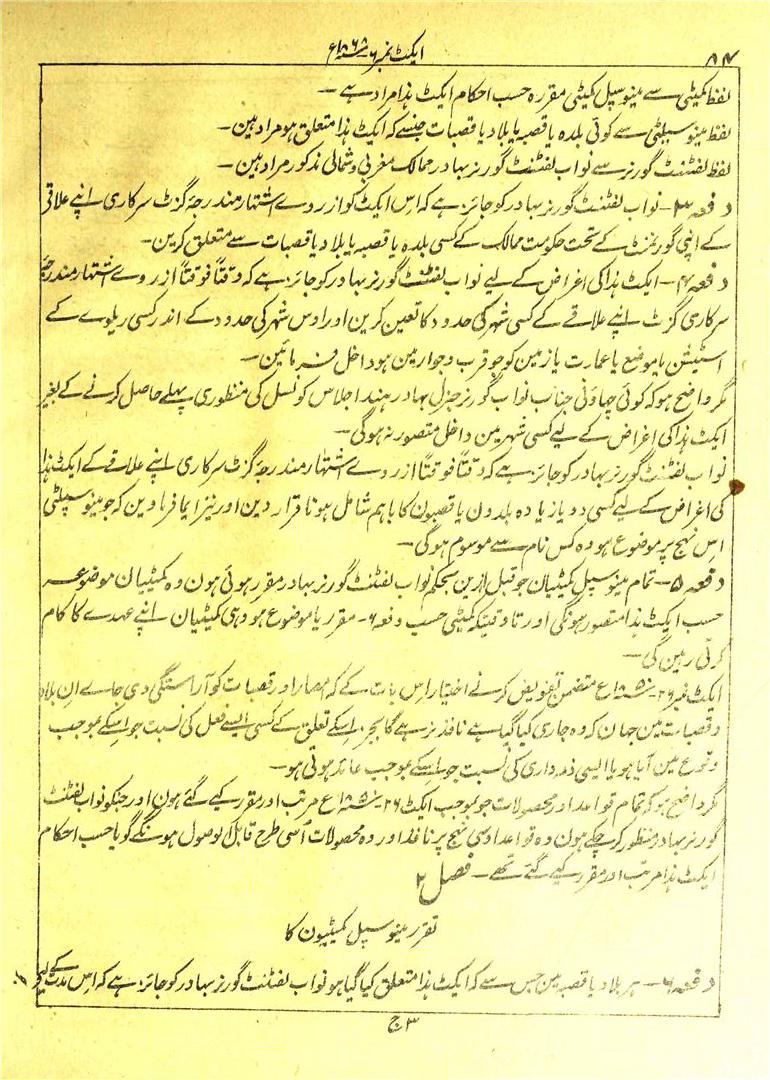 ۸۴
ایکٹ نمبر ۶ سنہ ۱۸۶۸ع
لفظ کمیٹی سے مینوسپل کمیٹی مقررہ حسب احکام ایکٹ ہذا مراد ہے —
لفظ مینوسپلٹی سے کوئی بلدہ یا قصبہ یا بلاد یا قصبات جنسے کہ ایکٹ ہذا متعلق ہو مراد ہین —
لفظ لفٹنٹ گورنر سے نواب لفٹنٹ گورنر بہادر ممالک مغربی و شمالی مذکور مراد ہین —
دفعہ ۳ — نواب لفٹنٹ گورنر بہادر کو جائز ہے کہ اس ایکٹ کو از روے اشتہار مندرجۂ گزٹ سرکاری اپنے علاقی
کے اپنی گورنمنٹ کے تحت حکومت ممالک کے کسی بلدہ یا قصبہ یا بلاد یا قصبات سے متعلق کرین —
دفعہ ۴ — ایکٹ ہذا کی اغراض کے لیے نواب لفٹنٹ گورنر بہادر کو جائز ہے کہ وقتاً فوقتاً از روے اشتہار مندرجۂ
سرکاری گزٹ اپنے علاقے کے کسی شہر کی حدود کا تعین کرین اور اوس شہر کی حدود کے اندر کسی ریلوے کے
اسٹیشن یا موضع یا عمارت یا زمین کو جو قرب و جوار مین ہو داخل فرمائین —
مگر واضح ہو کہ کوئی چھاونی جناب نواب گورنر جنرل بہادر ہند اجلاس کونسل کی منظوری پہلے حاصل کرنے کے بغیر
ایکٹ ہذا کی اغراض کے لیے کسی شہر مین داخل متصور نہ ہوگی —
نواب لفٹنٹ گورنر بہادر کو جائز ہے کہ وقتاً فوقتاً از روے اشتہار مندرجۂ گزٹ سرکاری اپنے علاقے کے ایکٹ ہذا
کی اغراض کے لیے کسی دو یا زیادہ بلدون یا قصبون کا باہم شامل ہونا قرار دین اور نیز ایما فرماوین کہ جو مینوسپلٹی
اس نہج پر موضوع ہو وہ کس نام سے موسوم ہوگی —
دفعہ ۵ — تمام مینوسپل کمیٹیان جو قبل ازین بحکم نواب لفٹنٹ گورنر بہادر مقرر ہوئی ہون وہ کمیٹیان موضوعہ
حسب ایکٹ ہذا متصور ہونگی اور تا وقتیکہ کمیٹی حسب دفعہ ۶ - مقرر یا موضوع ہو وہی کمیٹیان اپنے عہدے کا کام
کرتی رہین گی —
ایکٹ نمبر ۲۶ سنہ ۱۸۵۰ع متضمن تفویض کرنے اختیار اس بات کے کہ امصار اور قصبات کو آراستگی دی جاے ان بلاد
و قصبات مین جہان کہ وہ جاری کیا گیا ہے نافذ نر ہے گا بجز اسکے تعلق کے کسی ایسے فعل کی نسبت جو اسکے بموجب
وقوع مین آیا ہو یا ایسی ذمہ داری کی نسبت جو اسکے بموجب عائد ہوتی ہو —
مگر واضح ہو کہ تمام قواعد اور محصولات جو بموجب ایکٹ ۲۶ سنہ ۱۸۵۰ع مرتب اور مقرر کیے گئے ہون اور جنکو نواب لفٹنٹ
گورنر بہادر منظور کر چکے ہون وہ قواعد اوسی نہج پر نافذ اور وہ محصولات اسی طرح قابل الوصول ہونگے گویا حسب احکام
ایکٹ ہذا مرتب اور مقرر کیے گئے تھے — فصل ۲
تقرر مینوسپل کمیٹیون کا
دفعہ ۶ — ہر بلاد یا قصبہ مین جس سے کہ ایکٹ ہذا متعلق کیا گیا ہو نواب لفٹنٹ گورنر بہادر کو جائز ہے کہ اس مدت کے لیے
۳ ج